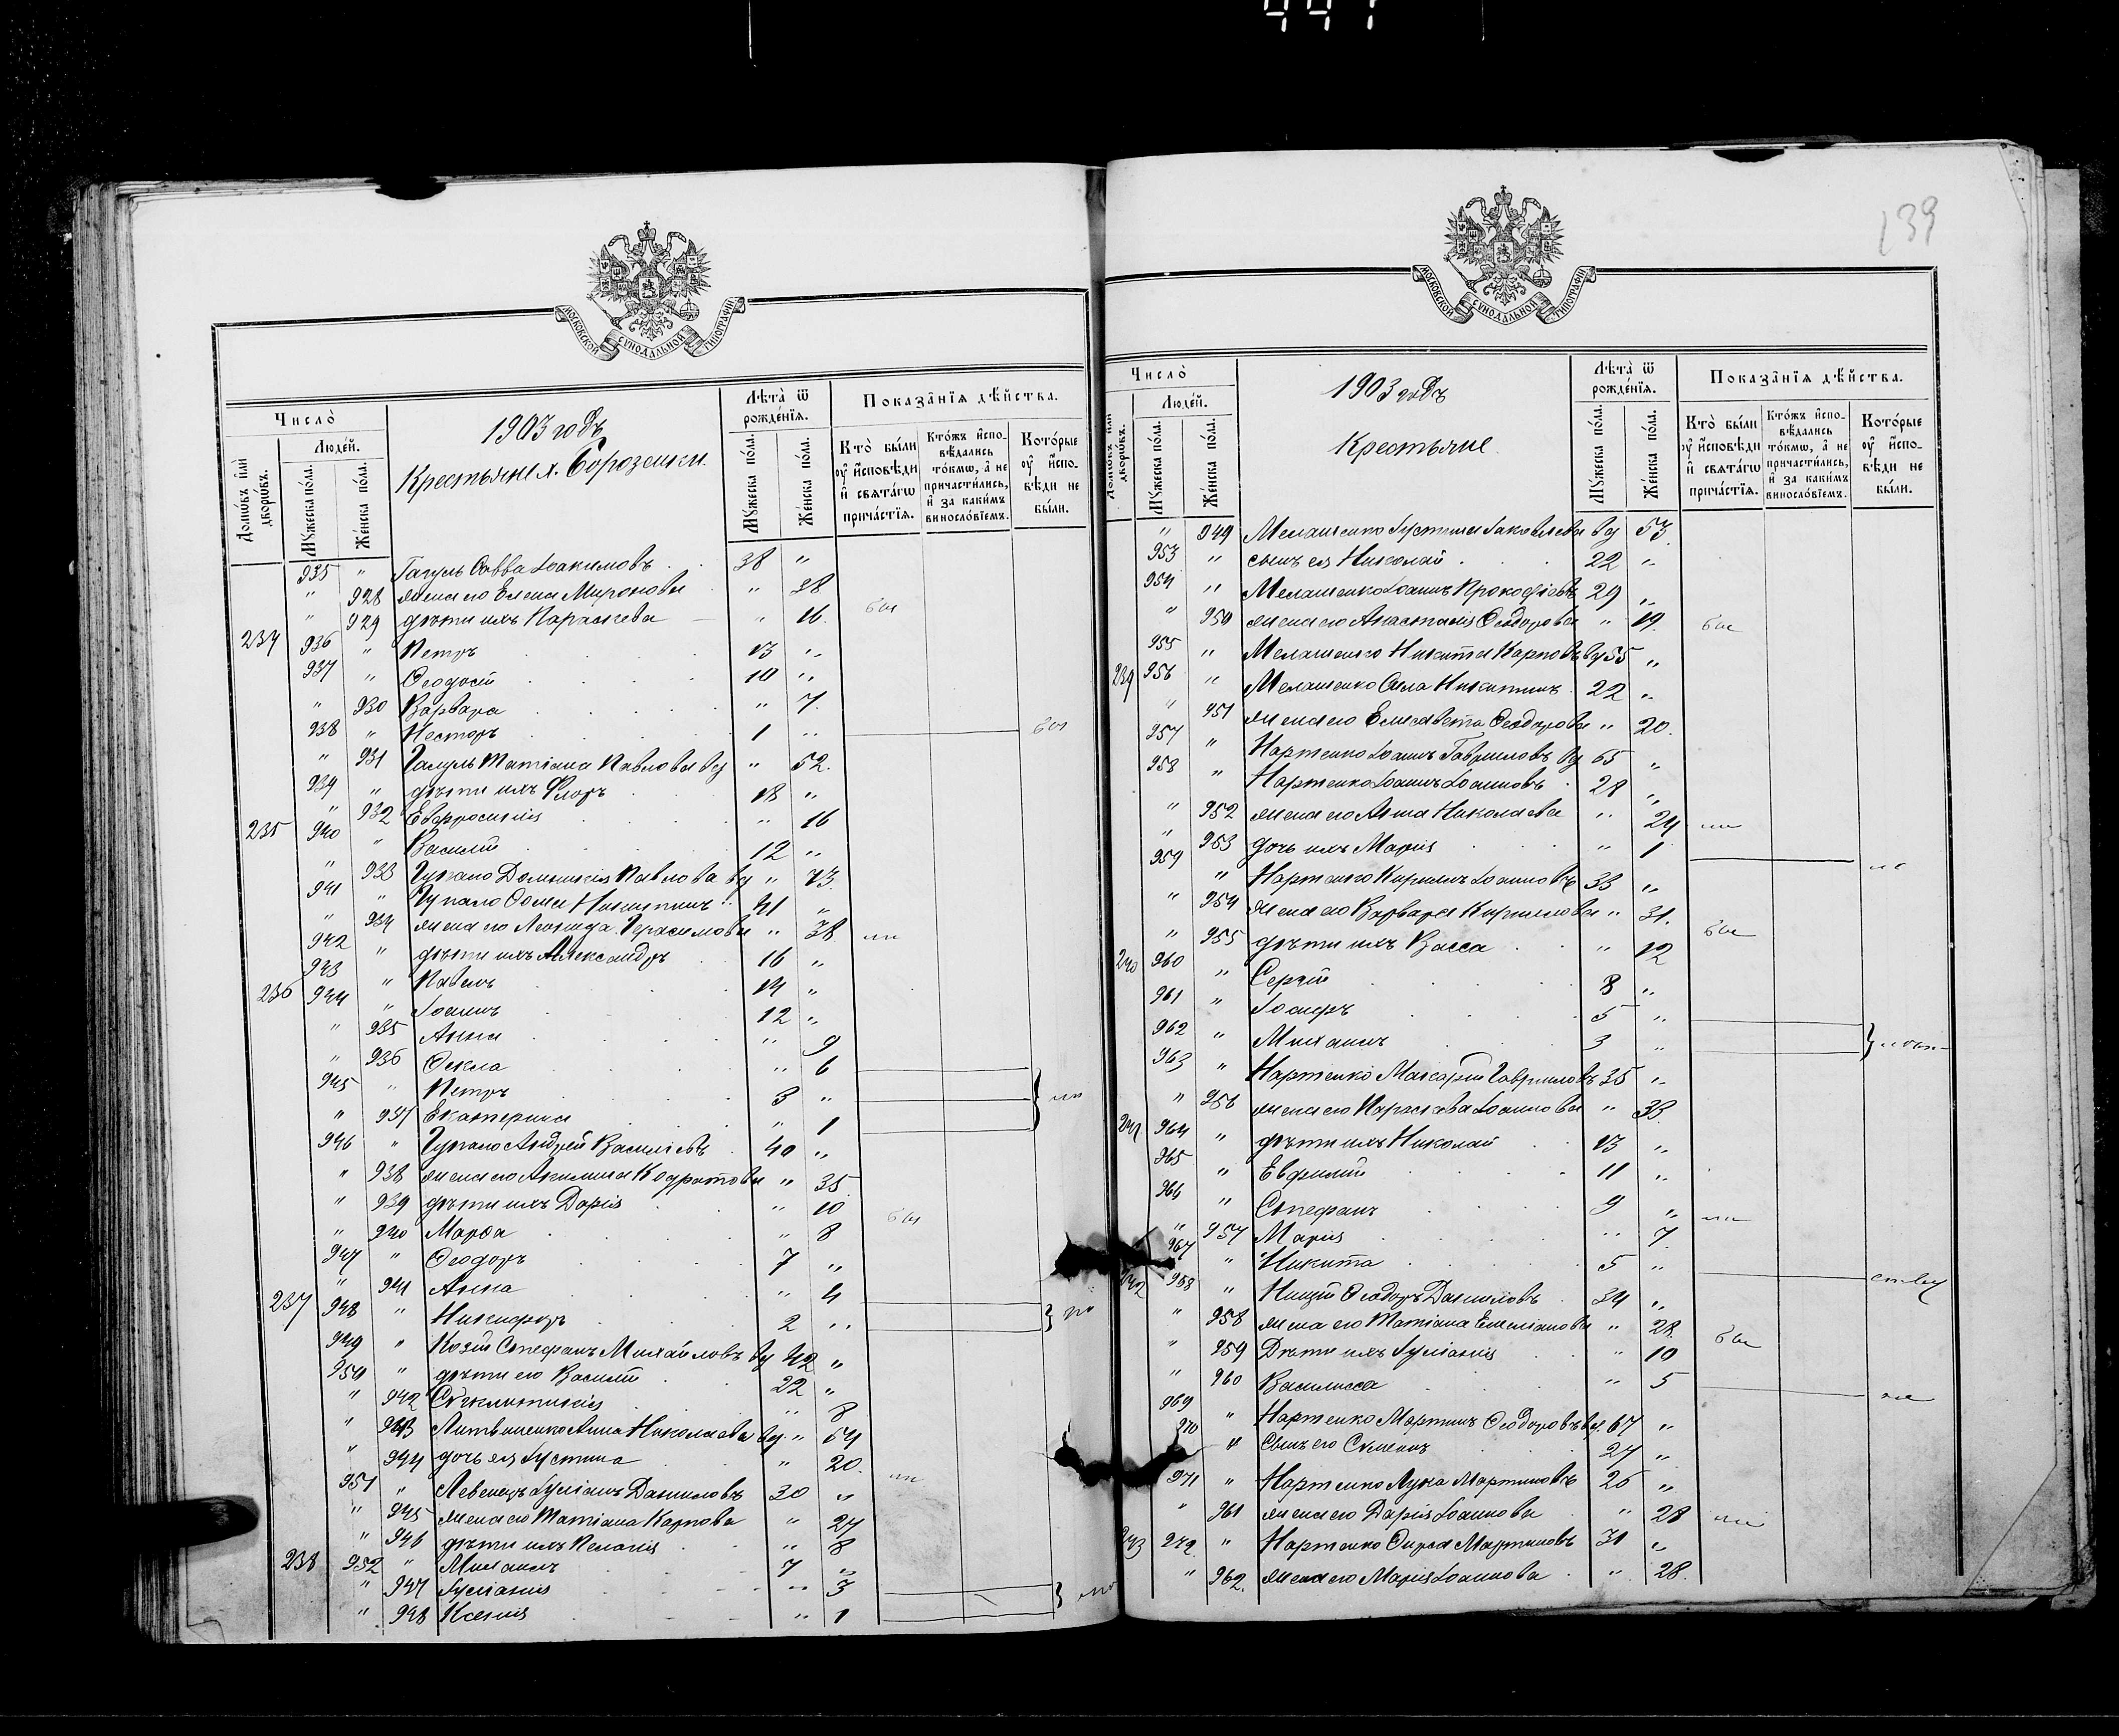 МОСКОВСКОЙ СѴНОДАЛЬНОЙ ТИПОГРАФІИ
Число̀
Домѡ́въ и҆лѝ дворѡ́въ.
Люде́й.
Мꙋ́жеска по́ла.
Же́нска по́ла.
1903 годъ
Крестьяне х.
Лѣ́та ѿ рожде́нїѧ.
Мꙋ́жеска по́ла.
Же́нска по́ла.
Показа̑нїѧ дѣ́йства.
Кто̀ бы́ли ᲂу҆ и҆сповѣ́ди и҆ свѧта́гѡ прича́стїѧ.
Кто́жъ и҆сповѣ́дались то́кмѡ, а҆ не причасти́лись, и҆ за каки́мъ виносло́вїемъ.
Кото́рые ᲂу҆ и҆сповѣ́ди не бы́ли.
935 " Савва Іоакимовъ 38 "
" 928 жена его Елена Миронова " 38
" 929 дѣти ихъ Параскева " 16.
234 936 " Петръ 13 "
937 " Ѳеодосій 10 "
" 930 Варвара " 7.
938 " Несторъ 1 "
" 931 Татіана Павлова вд " 52.
939 " дѣти ихъ Флоръ 18 "
" 932 Евфросинія " 16
235 940 " Василій 12 "
" 933 Домникія Павлова вд " 73.
941 " Ѳома Никитинъ 41 "
" 934 жена его Леонида Герасимова " 38
942 " дѣти ихъ Александръ 16 "
943 " Павелъ 14 "
236 944 " Іоаннъ 12 "
" 935 Анна " 9
" 936 Ѳекла " 6
945 " Петръ 3 "
" 937 Екатерина " 1
946 " Андрей Василіевъ 40 "
" 938 жена его Акилина Кодратова " 35
" 939 дѣти ихъ Дарія " 10
" 940 Марѳа " 8
947 " Ѳеодоръ 7 "
" 941 Анна " 4
237 948 " Никифоръ 2 "
949 " Козій Стефанъ Михайловъ вд 42 "
950 " дѣти его Василій 22 "
" 942 Сѵнклитикія " 8
" 943 Литвиненко Анна Николаева вд " 54
" 944 дочь ея Іустина " 20.
951 " Левенецъ Іуліанъ Даниловъ 30 "
" 945 жена его Татіана Карпова " 27
" 946 дѣти ихъ Пелагія " 8
238 952 " Михаилъ 7 "
" 947 Іуліанія " 3
" 948 Ксенія " 1
139
МОСКОВСКОЙ СѴНОДАЛЬНОЙ ТИПОГРАФІИ
Число̀
Домѡ́въ и҆лѝ дворѡ́въ.
Люде́й.
Мꙋ́жеска по́ла.
Же́нска по́ла.
1903 годъ
Крестьяне
Лѣ́та ѿ рожде́нїѧ.
Мꙋ́жеска по́ла.
Же́нска по́ла.
Показа̑нїѧ дѣ́йства.
Кто̀ бы́ли ᲂу҆ и҆сповѣ́ди и҆ свѧта́гѡ прича́стїѧ.
Кто́жъ и҆сповѣ́дались то́кмѡ, а҆ не причасти́лись, и҆ за каки́мъ виносло́вїемъ.
Кото́рые ᲂу҆ и҆сповѣ́ди не бы́ли.
" 949 Мелашенко Іустина Іаковлева вд 53
953 " сынъ ея Николай 22 "
954 " Мелашенко Іоаннъ Прокофіевъ 29 "
" 950 жена его Анастасія Ѳеодорова " 19.
955 " Мелашенко Никита Карповъ вд 55 "
239 956 " Мелашенко Сила Никитинъ 22 "
" 951 жена его Елисавета Ѳеодорова " 20.
957 " Нартенко Іоаннъ Гавриловъ вд 65 "
958 " Нартенко Іоаннъ Іоанновъ 28 "
" 952 жена его Анна Николаева " 24
" 953 дочь ихъ Марія " 1
959 " Нартенко Кириллъ Іоанновъ 33 "
" 954 жена его Варвара Кириллова " 31.
" 955 дѣти ихъ Васса " 12
240 960 " Сергій 8 "
961 " Іосифъ 5 "
962 " Михаилъ 3 "
963 " Нартенко Макарій Гавриловъ 35 "
" 956 жена его Параскева Іоаннова " 33.
241 964 " дѣти ихъ Николай 13 "
965 " Евфимій 11 "
966 " Стефанъ 9 "
" 957 Марія " 7
967 " Никита 5 "
242 968 " Нищій Ѳеодоръ Даниловъ 34 "
" 958 жена его Татіана Емеліанова " 28
" 959 Дѣти ихъ Іуліанія " 10
" 960 Василисса " 5
969 " Нартенко Мартинъ Ѳеодоровъ вд. 67 "
970 " Сынъ его Сѵмеонъ 27 "
971 " Нартенко Лука Мартиновъ 25 "
" 961 жена его Дарія Іоаннова " 28
243 972. " Нартенко Мартиновъ 31 "
" 962. жена его Марія Іоаннова " 28.